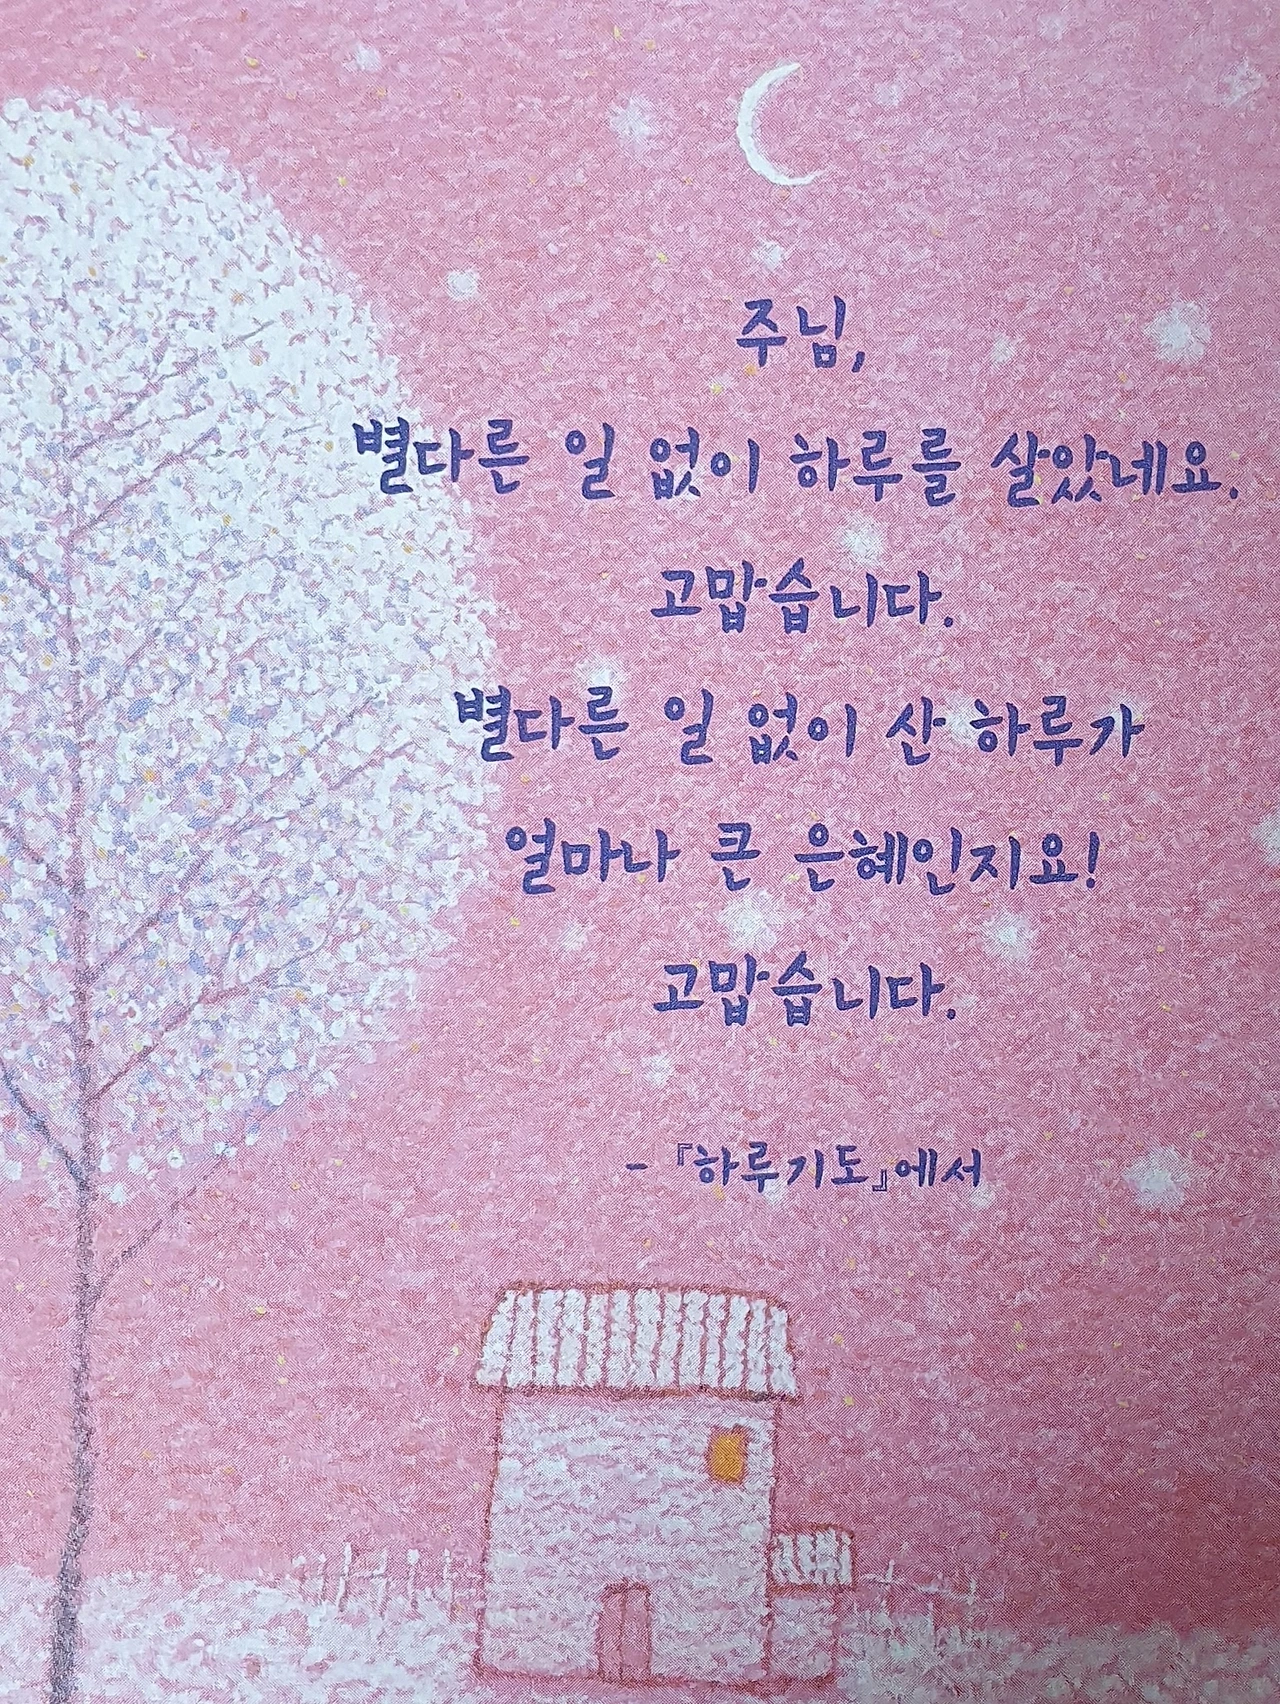 주님,
별다른 일 없이 하루를 살았네요.
고맙습니다.
별다른 일 없이 산 하루가
얼마나 큰 은혜인지요!
고맙습니다.
- 『하루기도』에서